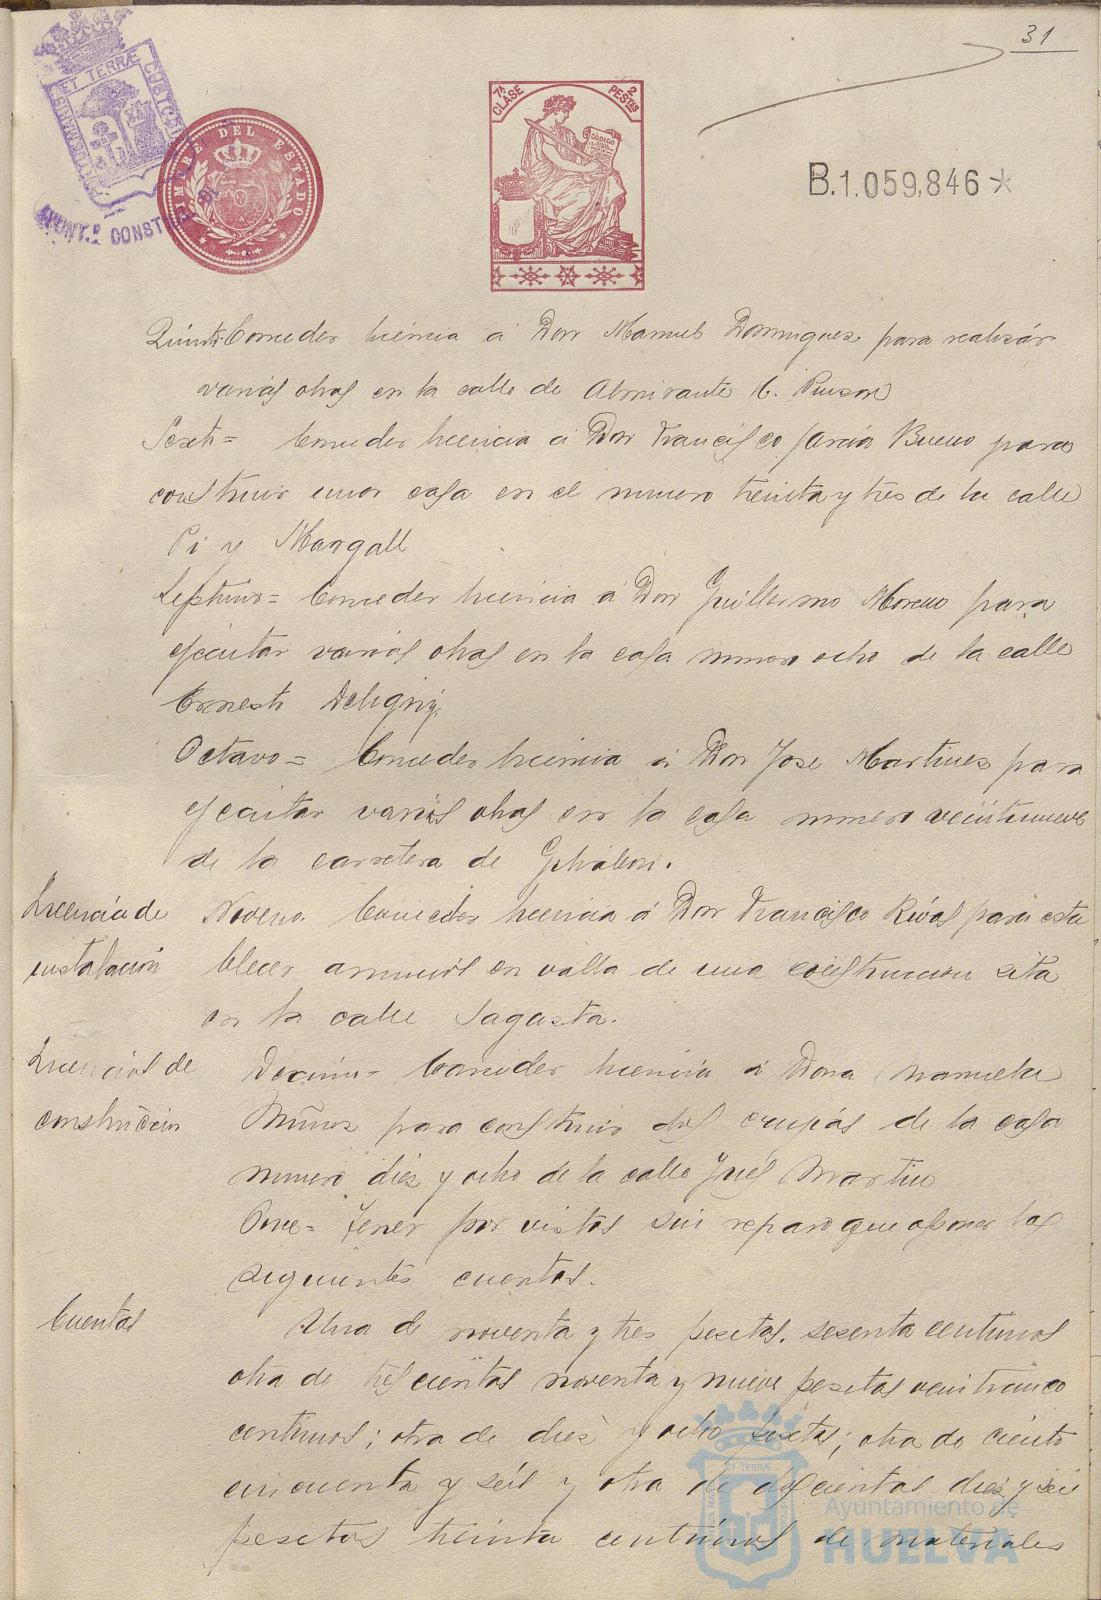 31
ET TERRÆ CUSTODIA
AYUNT.º CONST
TIMBRE DEL ESTADO
7ª CLASE
2 PESTAS
CÓDIGO
B.1.059,846*
Quinto Conceder licencia á Don Manuel Dominguez para realizár
varias obras en la calle de Almirante H. Pinzon
Sexto= Conceder licencia á Don Francisco Garcia Bueno para
construir una casa en el numero treinta y tres de la calle
Pi y Margall
Septimo= Conceder licencia á Don Guillermo Moreno para
ejecutar varias obras en la casa numero ocho de la calle
Ernesto Deligny.
Octavo= Conceder licencia á Don Jose Martinez para
ejecutar varias obras en la casa numero veintinueve
de la carretera de Gibraleon.
Licencia de
instalación
Noveno Conceder licencia á Don Francisco Rivas para esta
blecer anuncios en valla de una construccion sita
en la calle Sagasta.
Licencias de
construcción
Decimo= Conceder licencia á Dona Manuela
Muñoz para construir dos de la casa
numero diez y ocho de la calle Ynés Martin
Once= Tener por vistas sin reparo que oponer las
siguientes cuentas.
Cuentas
Una de noventa y tres pesetas, sesenta centimos
otra de trescientas noventa y nueve pesetas veinticinco
centimos; otra de diez y ocho pesetas; otra de ciento
cincuenta y seis y otra de doscientas diez y seis
pesetas treinta centimos de materiales
Ayuntamiento de
HUELVA